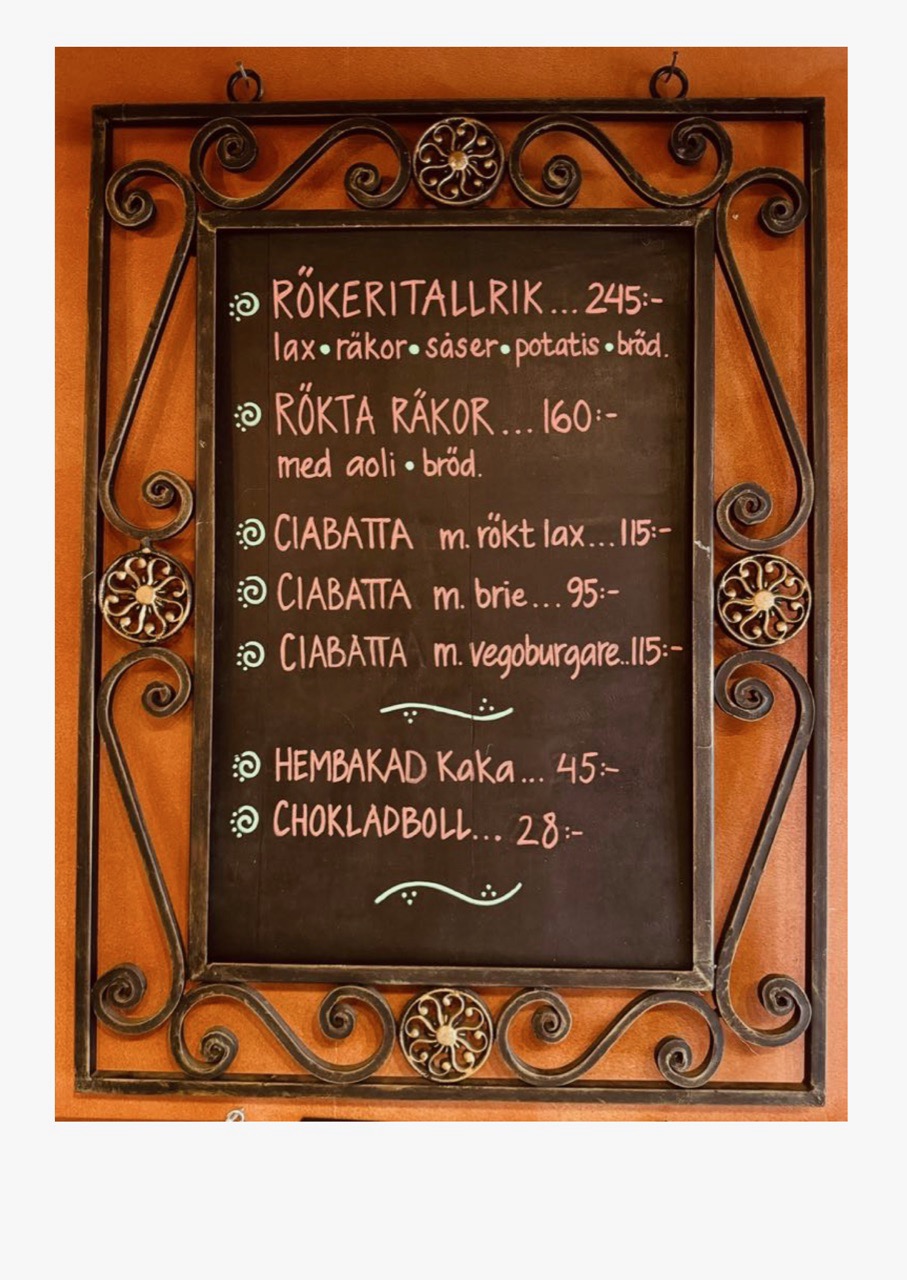 RÖKERITALLRIK... 245:-
lax • räkor • såser • potatis • bröd.
RÖKTA RÄKOR... 160:-
med aoli • bröd.
CIABATTA m. rökt lax... 115:-
CIABATTA m. brie... 95:-
CIABATTA m. vegoburgare..115:-
HEMBAKAD Kaka... 45:-
CHOKLADBOLL... 28:-